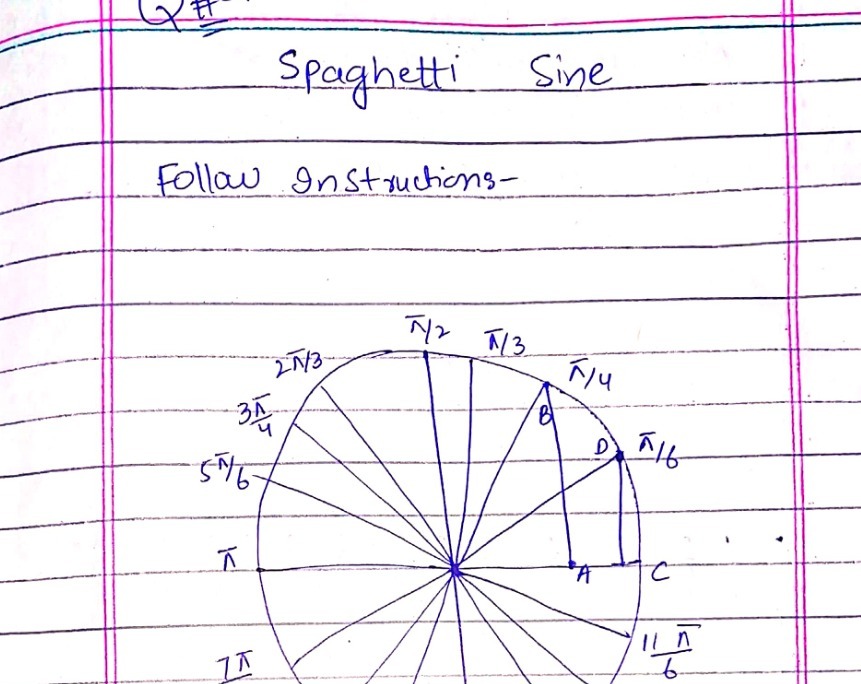 Q#
Spaghetti Sine
Follow Instructions-
π/2
π/3
2π/3
π/4
3π/4
B
D
π/6
5π/6
π
A
C
11π/6
7π